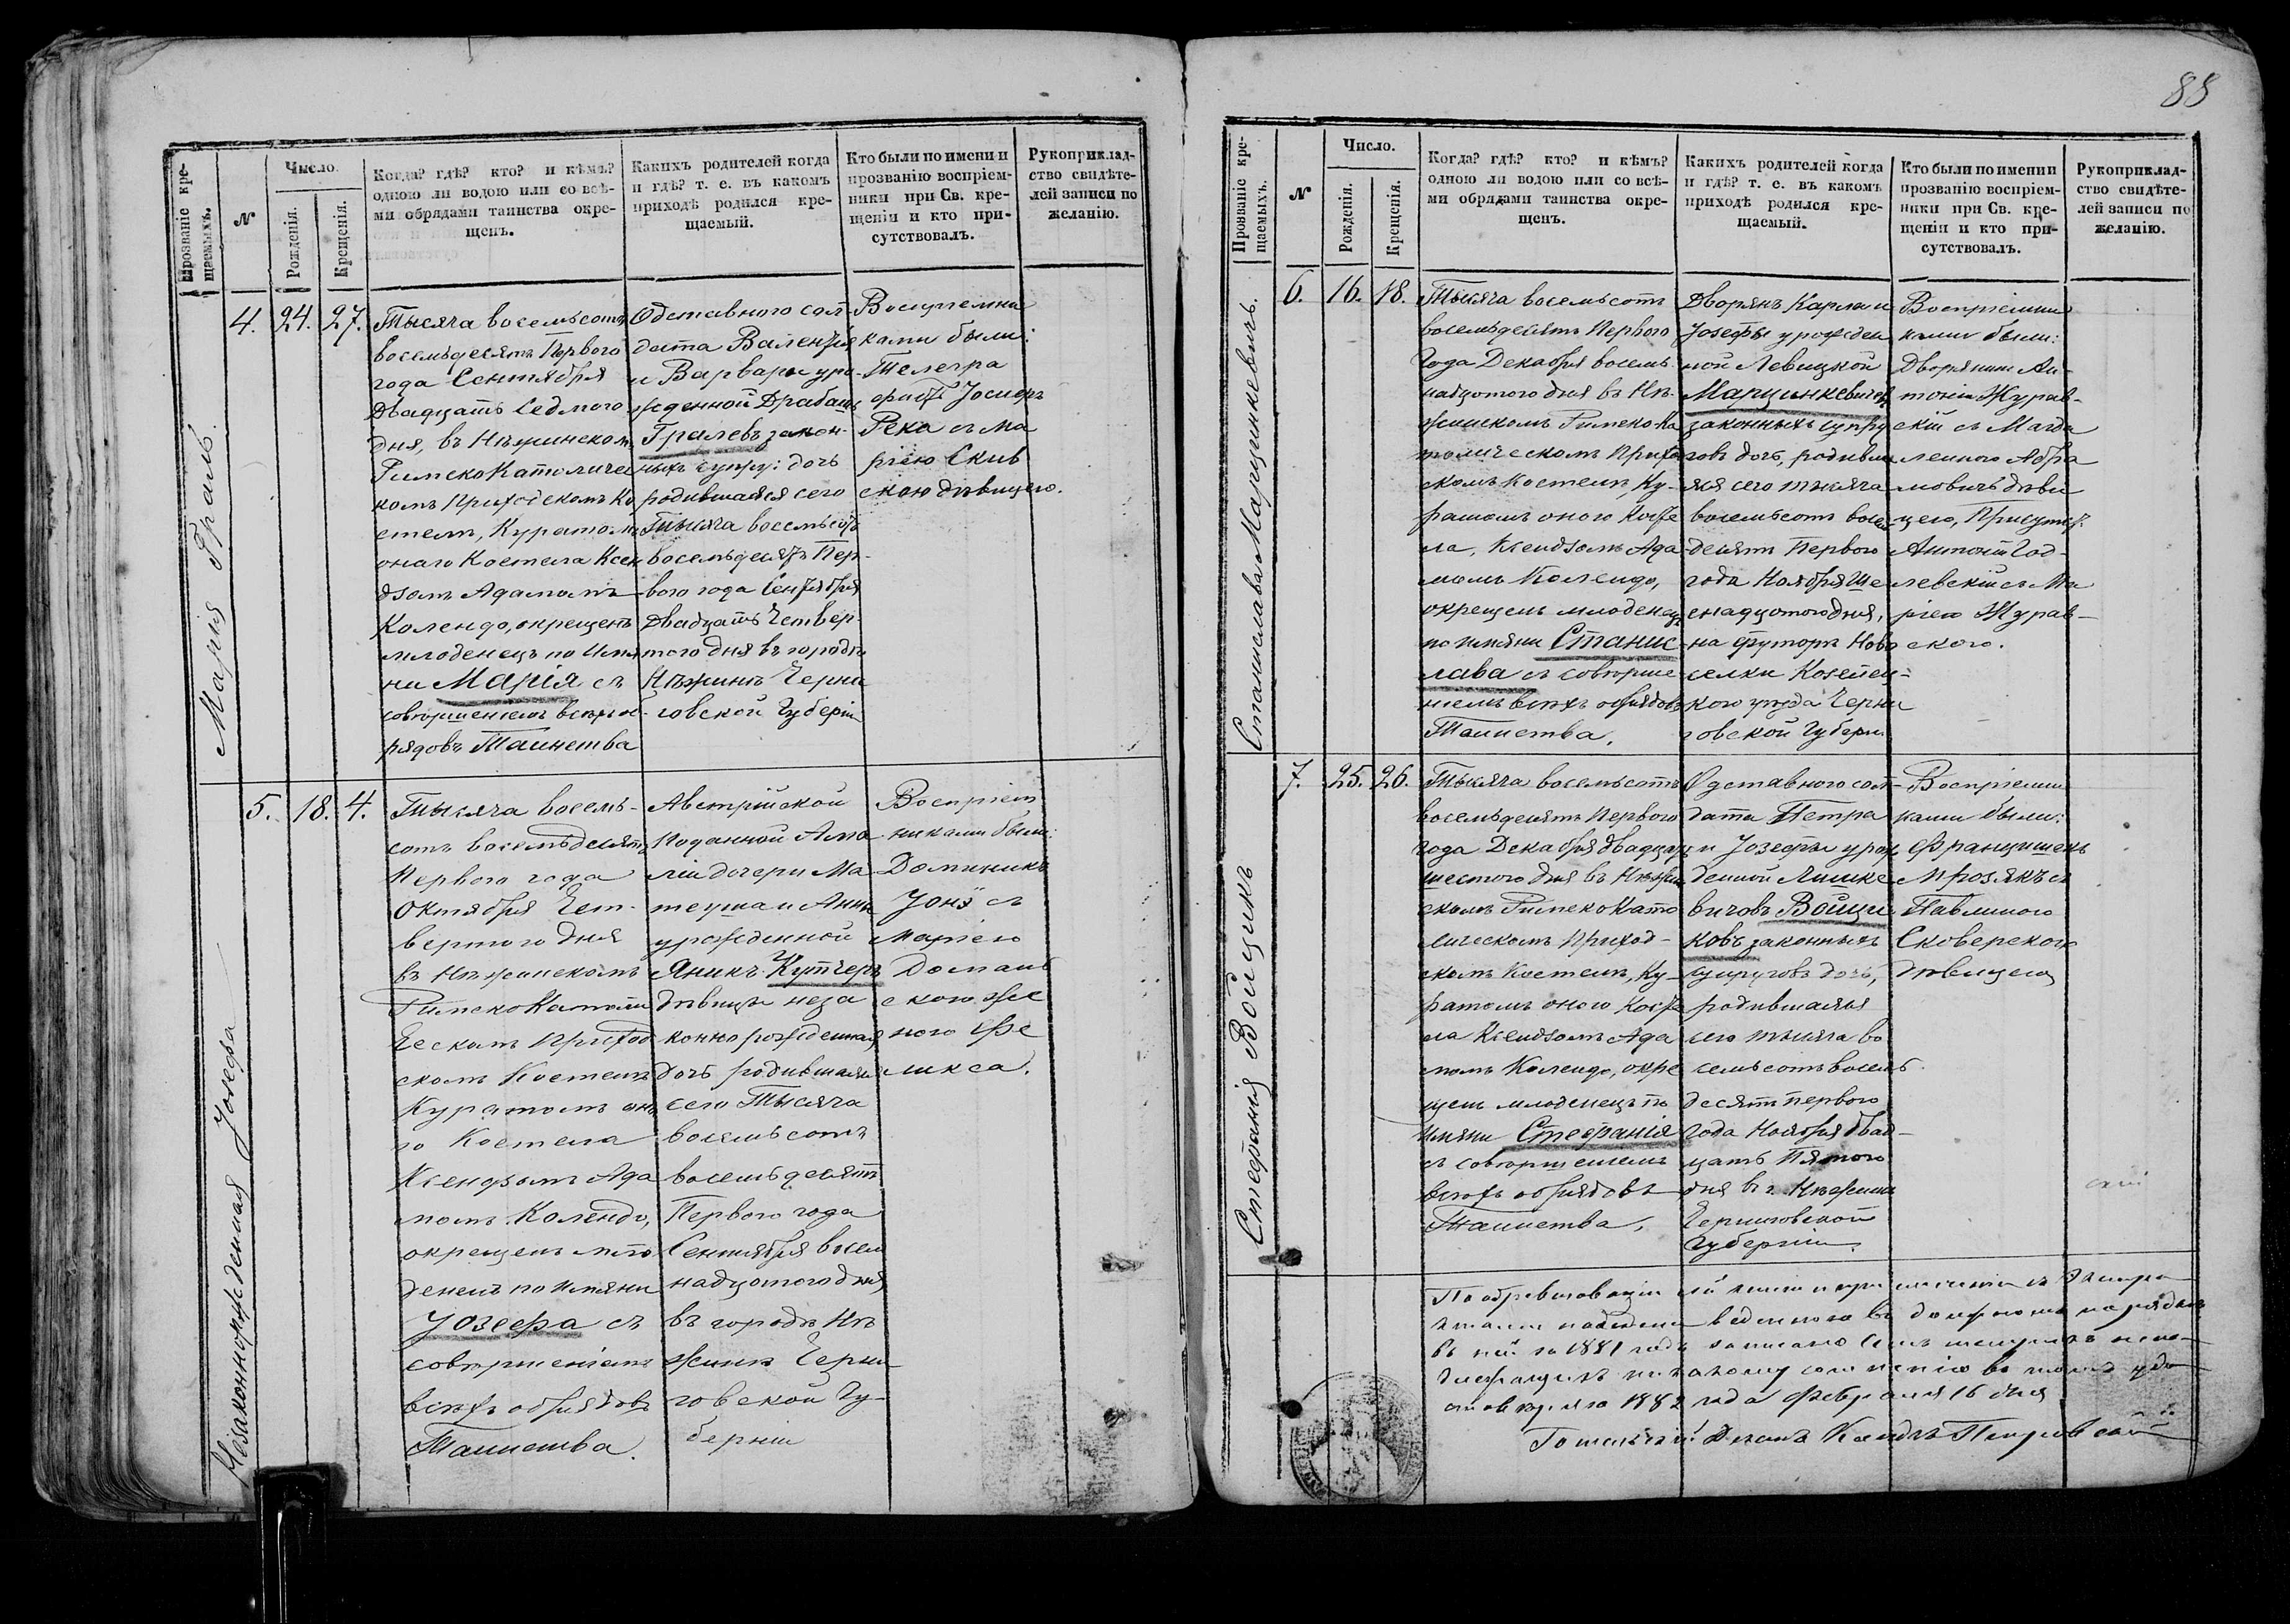 88
Прозваніе кре-
щаемыхъ.
N
Число.
Рожденія.
Крещенія.
Когда? гдѣ? кто? и кѣмъ?
одною ли водою или со всѣ-
ми обрядами таинства окре-
щенъ.
Какихъ родителей когда
и гдѣ? т. е. въ какомъ
приходѣ родился кре-
щаемый.
Кто были по имени и
прозванію воспріем-
ники при Св. кре-
щеніи и кто при-
сутствовалъ.
Рукоприклад-
ство свидѣте-
лей записи по
желанію.
Марія Граль.
4.
24.
27.
Тысяча восемьсотъ
восемьдесятъ Перваго
года Сентября
Двадцать Седмого
дня, въ Нѣжинском
Римско Католичес
комъ Приходскомъ Ко
стелѣ, Куратомъ
онаго Костела Ксен
дзомъ Адамомъ
Колендо, окрещенъ
младенецъ по Имя
ни Марія съ
совершеніемъ всѣхъ об-
рядовъ Таинства
Отставного сол-
дата Валентія
и Варвары уро-
жденной Драбашъ
Гралевъ закон-
ныхъ супру: дочь
родившаяся сего
Тысяча восемьсотъ
восемьдесятъ Пер-
вого года Сентября
Двадцать Четвер-
того дня въ городѣ
Нѣжинѣ Черни
говской Губерніи
Воспріемни
ками были:
Телегра
фистъ Іосифъ
Река съ Ма
ріею Скив
скою дѣвицею.
Незаконнорожденная Іозефа
5.
18.
4.
Тысяча восемь-
сотъ восемьдесятъ
Перваго года
Октября Чет-
вертого дня
въ Нѣжинскомъ
Римско Католи
ческомъ Приход
скомъ Костелѣ
Куратомъ она
го Костела
Ксендзомъ Ада
момъ Колендо,
окрещенъ мла
денецъ по Имяни
Іозефа съ
совершеніемъ
всѣхъ обрядовъ
Таинства.
Австрійской
Поданной Ама
ліи дочери Ма
теуша и Анны
урожденной
Яникъ Кутчеръ
дѣвицы неза
конно рожденная
дочь родившаяся
сего Тысяча
восемьсотъ
восемьдесятъ
Перваго года
Сентября восем
надцатого дня
въ городѣ Нѣ
жинѣ Черни
говской Гу-
берніи
Воспріем
никами были:
Доминикъ
съ
Маріею
Доман
скою же
ною Фе
ликса.
Прозваніе кре-
щаемыхъ.
N
Число.
Рожденія.
Крещенія.
Когда? гдѣ? кто? и кѣмъ?
одною ли водою или со всѣ-
ми обрядами таинства окре-
щенъ.
Какихъ родителей когда
и гдѣ? т. е. въ какомъ
приходѣ родился кре-
щаемый.
Кто были по имени и
прозванію воспріем-
ники при Св. кре-
щеніи и кто при-
сутствовалъ.
Рукоприклад-
ство свидѣте-
лей записи по
желанію.
Станислава Марцинкевичъ.
6.
16.
18.
Тысяча восемьсотъ
восемьдесятъ Перваго
года Декабря восемь
надцатого дня въ Нѣ-
жинскомъ Римско Ка
толическомъ Приход
скомъ Костелѣ, Ку-
ратомъ оного Косте
ла, Ксендзомъ Ада
момъ Колендо,
окрещенъ младенецъ
по имяни Станис
лава съ соверше
ніемъ всѣхъ обрядовъ
Таинства.
Дворянъ Карла и
Іозефы урожден
ной Левицкой
Марцинкевичевъ
законныхъ супру
говъ дочь, родивша
яся сего тысяча
восемьсотъ восемь
десятъ Перваго
года Ноября Ше
снадцатого дня,
на футорѣ Ново
селки Козелец-
кого уѣзда Черни
говской Губерн
Воспріемни
ками были:
Дворянин Ан-
тоній Журав-
скій съ Магда
леною Абра
мовичъ дѣви
цею, Присутст.
Антоній Год-
левскій съ Ма
ріею Журав-
ского.
Стефанія Войцикъ
7.
25.
26.
Тысяча восемьсотъ
восемьдесятъ Перваго
года Декабря двадцать
шестого дня въ Нѣжин
скомъ Римско Като
лическомъ Приход-
скомъ Костелѣ, Ку-
ратомъ оного Косте
ла Ксендзомъ Ада
момъ Колендо, окре
щенъ младенецъ по
Имяни Стефанія
съ совершеніемъ
всѣхъ обрядовъ
Таинства.
Отставного сол-
дата Петра
и Іозефы урож
денной Лишке
вичовъ Войци
ковъ законныхъ
супруговъ дочь,
родившаяся
сего тысяча во
семьсотъ восемь
десятъ Первого
года Ноября двад-
цать Пятого
дня въ г. Нѣжинѣ
Черниговской
Губерніи.
Воспріемни
ками были:
Францишекъ
Мрозякъ съ
Павлиною
Сковерского
дѣвицею
въ 1881 годъ
1882 года Февраля 16 дня
Гомельскій Деканъ Ксендзъ